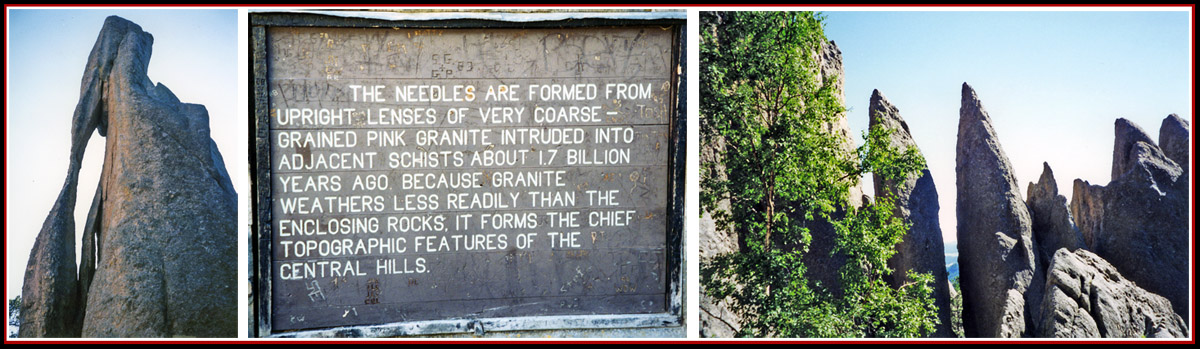 THE NEEDLES ARE FORMED FROM
UPRIGHT LENSES OF VERY COARSE-
GRAINED PINK GRANITE INTRUDED INTO
ADJACENT SCHISTS ABOUT 1.7 BILLION
YEARS AGO. BECAUSE GRANITE
WEATHERS LESS READILY THAN THE
ENCLOSING ROCKS, IT FORMS THE CHIEF
TOPOGRAPHIC FEATURES OF THE
CENTRAL HILLS.